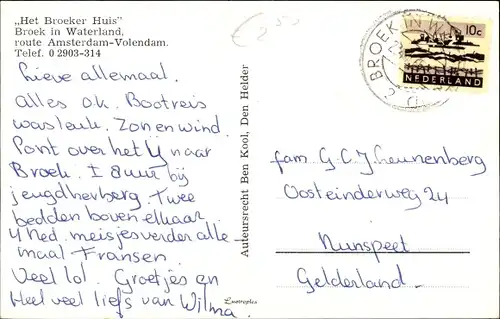 „Het Broeker Huis"
Broek in Waterland,
route Amsterdam-Volendam.
Telef. 0 2903-314
Lieve allemaal.
Alles o.k. Bootreis
was leuk. Zon en wind.
Pont over het Y naar
Broek. I 8 uur bij
jeugdherberg. Twee
bedden boven elkaar.
4 Ned. meisjes verder alle-
maal Fransen.
Veel lol. Groetjes en
Heel veel liefs van Wilma.
Auteursrecht Ben Kool, Den Helder
BROEK IN WA
10c
NEDERLAND
fam G.C.J. Leunenberg
Oosteinderweg 24
Nunspeet
Gelderland.